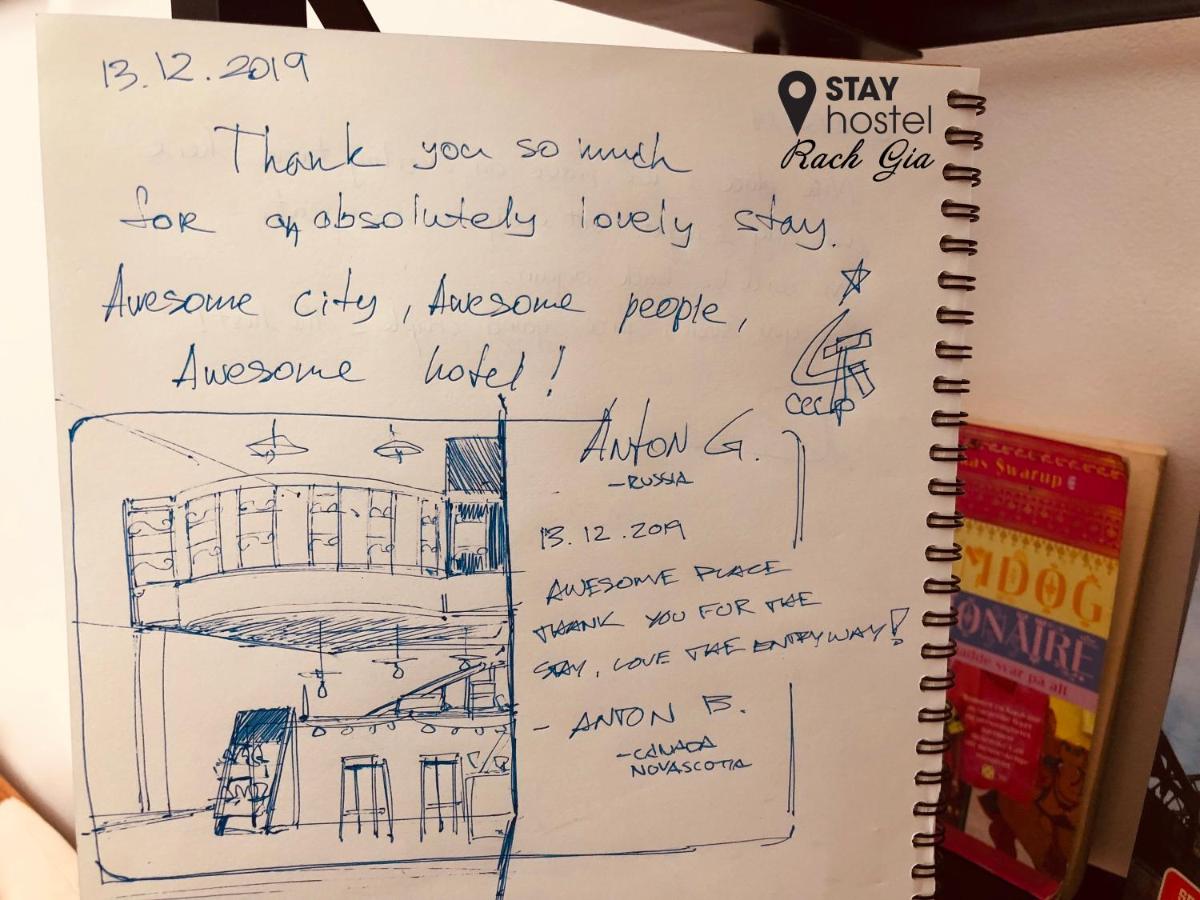 13.12.2019
STAY
hostel
Rach Gia
Thank you so much
for an absolutely lovely stay.
Awesome city, Awesome people,
Awesome hotel!
CCCP
ANTON G.
-RUSSIA
13.12.2019
AWESOME PLACE
THANK YOU FOR THE
STAY, LOVE THE ENTRYWAY!
- ANTON B.
-CANADA
NOVASCOTIA
as Swarup
MDOG
ONAIRE
adde svar på alt